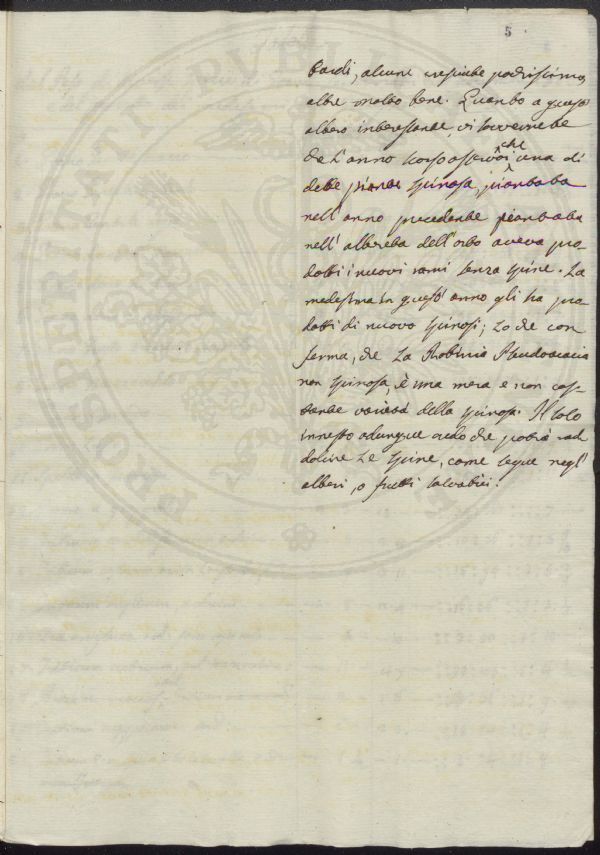 5
tardi, alcune crescinte pochissimo,
altre molto bene. Quando a questo
albero interessante, vi sovverrete
che l'anno scorso asserii che una di
dette piante spinosa, piantata
nell'anno precedente piantata
nell'albereta dell'orto aveva pro
dotti i nuovi rami senza spine. La
medesima in quest'anno gli ha pro
dotti di nuovo spinosi; lo che con
ferma, che La Robinia Pseudoacacia
non spinosa, è una mera e non cos-
tante varietà della spinosa. Il solo
innesto adunque credo che potrà rad
dolcire Le spine, come segue negl'
alberi, o frutti salvatici.
PROSPERITATI PUBL